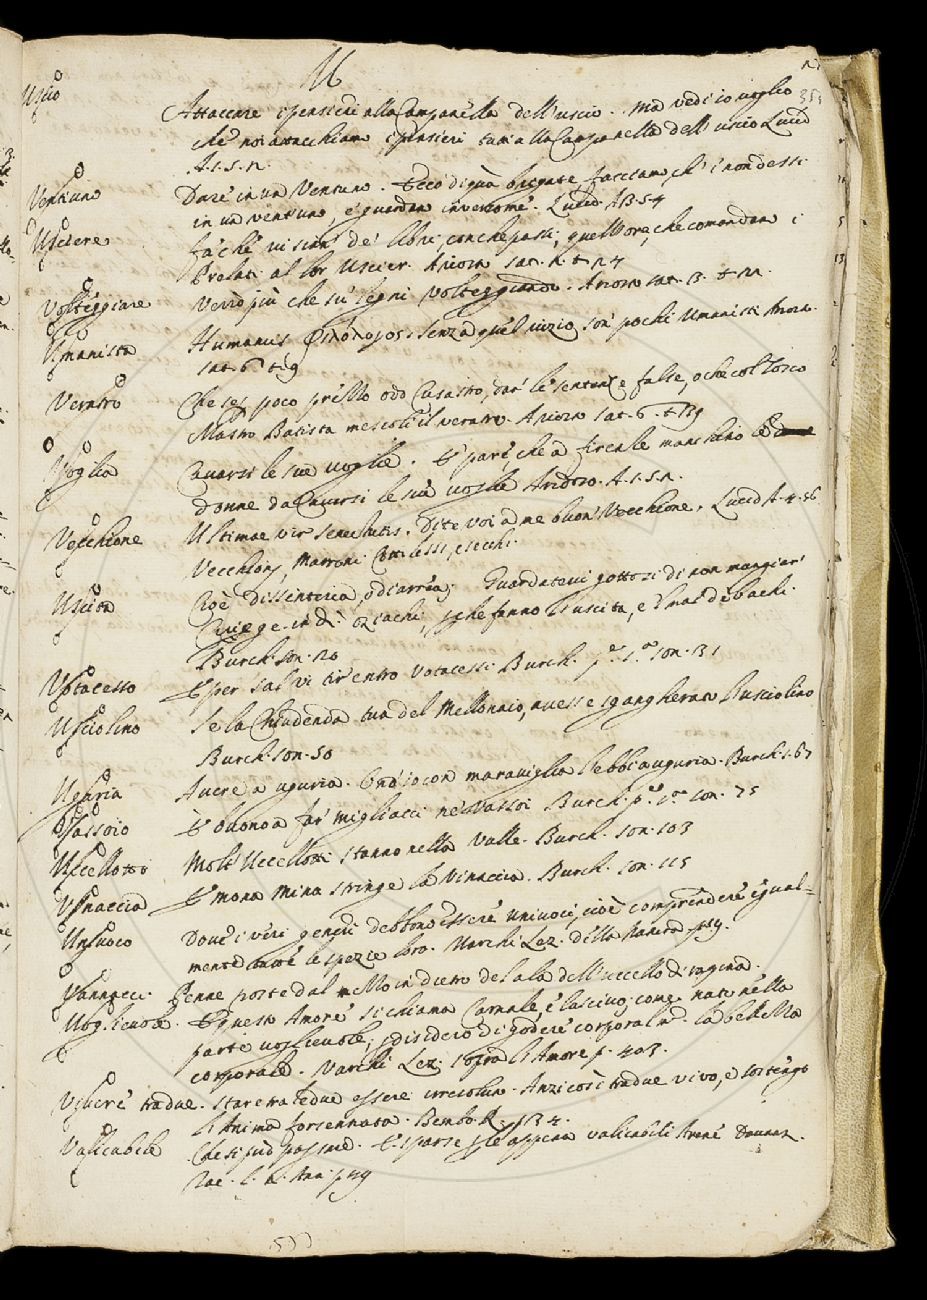 U
353
Uscio
Attaccare i pensieri alla Campanella dell'uscio. Ma vedi io voglio
che noi attacchiamo i pensieri tutti alla Campanella dell'uscio Lucid
A. 1. S. n.
Ventuno
Dare in un Ventuno. Ecco di quà brigate, facciam, ch'i non dessi
in un ventuno, e guardan inverso me. Lucid. A 3. S 4
Usciere
fà che vi sian de' libri, con che passi quell'ore, che comandan i
Prelati al lor Uscier. Ariosto sat. n. t. n4
Volteggiare
Verrò più che sù legni volteggiando. Ariosto sat. 3. t. n.
Umanista
Humanus. senza quel vizio son pochi Umanisti Arios.
sat. 6 t. 9
Veratro
Che sei poco prezzo odo Cusatro, dar le sentenze false, o che col Tosco
Mastro Batista mescoli il veratro. Ariosto sat. 6. t. 39
Voglia
Cavarsi le sue voglie. E pare, che a Firenze manchino le
donne da Cavarsi le sue voglie Aridoso. A. 1. S. n.
Vecchione
Ultimae vir senectutis. Dite voi a me buon Vecchione. Lucid A. 4. S6
Vecchioni, Marroni Cotti lessi, e secchi.
Uscita
Cioè dissenteria, o diarrea; Guardatevi gottosi di non mangiar
Ciriege in dì oziachi, che fanno l'uscita, e 'l mal de' bachi.
Burch. son. 20
Votacesso
E per salvi tir'entro votacessi Burch. p.e 1.a son. 31
Usciolino
Se la Chiudenda tua del Mellonaio, avesse sgangherato l'usciolino
Burch. son. 50
Uguria
Avere a uguria. Ond'io con maraviglia l'ebbi a uguria. Burch. 1. 67
Vassoio
E buono a far migliacci ne' Vassoi Burch. p.e 1.a son. 75
Uccellozzi
Molti Uccellozzi stanno nella Valle. Burch. son. 103
Vinaccia
E mona Mina stringe la Vinaccia. Burch. son. 115
Univoco
Dove i veri generi debbono essere univoci, cioè comprendere igual=
mente tutte le spezie loro. Varchi Lez. della Natura p. 59.
Vannucci
Penne poste dal mezzo in dietro de l'ala dell'uccello di rapina.
Voglievole.
E questo Amore si chiama Carnale, e lascivo come nato nella
parte voglievole, e disidero di godere corporalmte la bellezza
corporale. Varchi Lez. sopra l'Amore p. 403.
Vivere tradue.
stare tradue essere irresoluto. Anzi così tradue vivo, e sostengo
l'Anima forsennata. Bembo R. p 34.
Valicabile
Che si può passare. E sparse, e appena valicabili Arene Davanz.
Tac. l. n. Ann. p 49